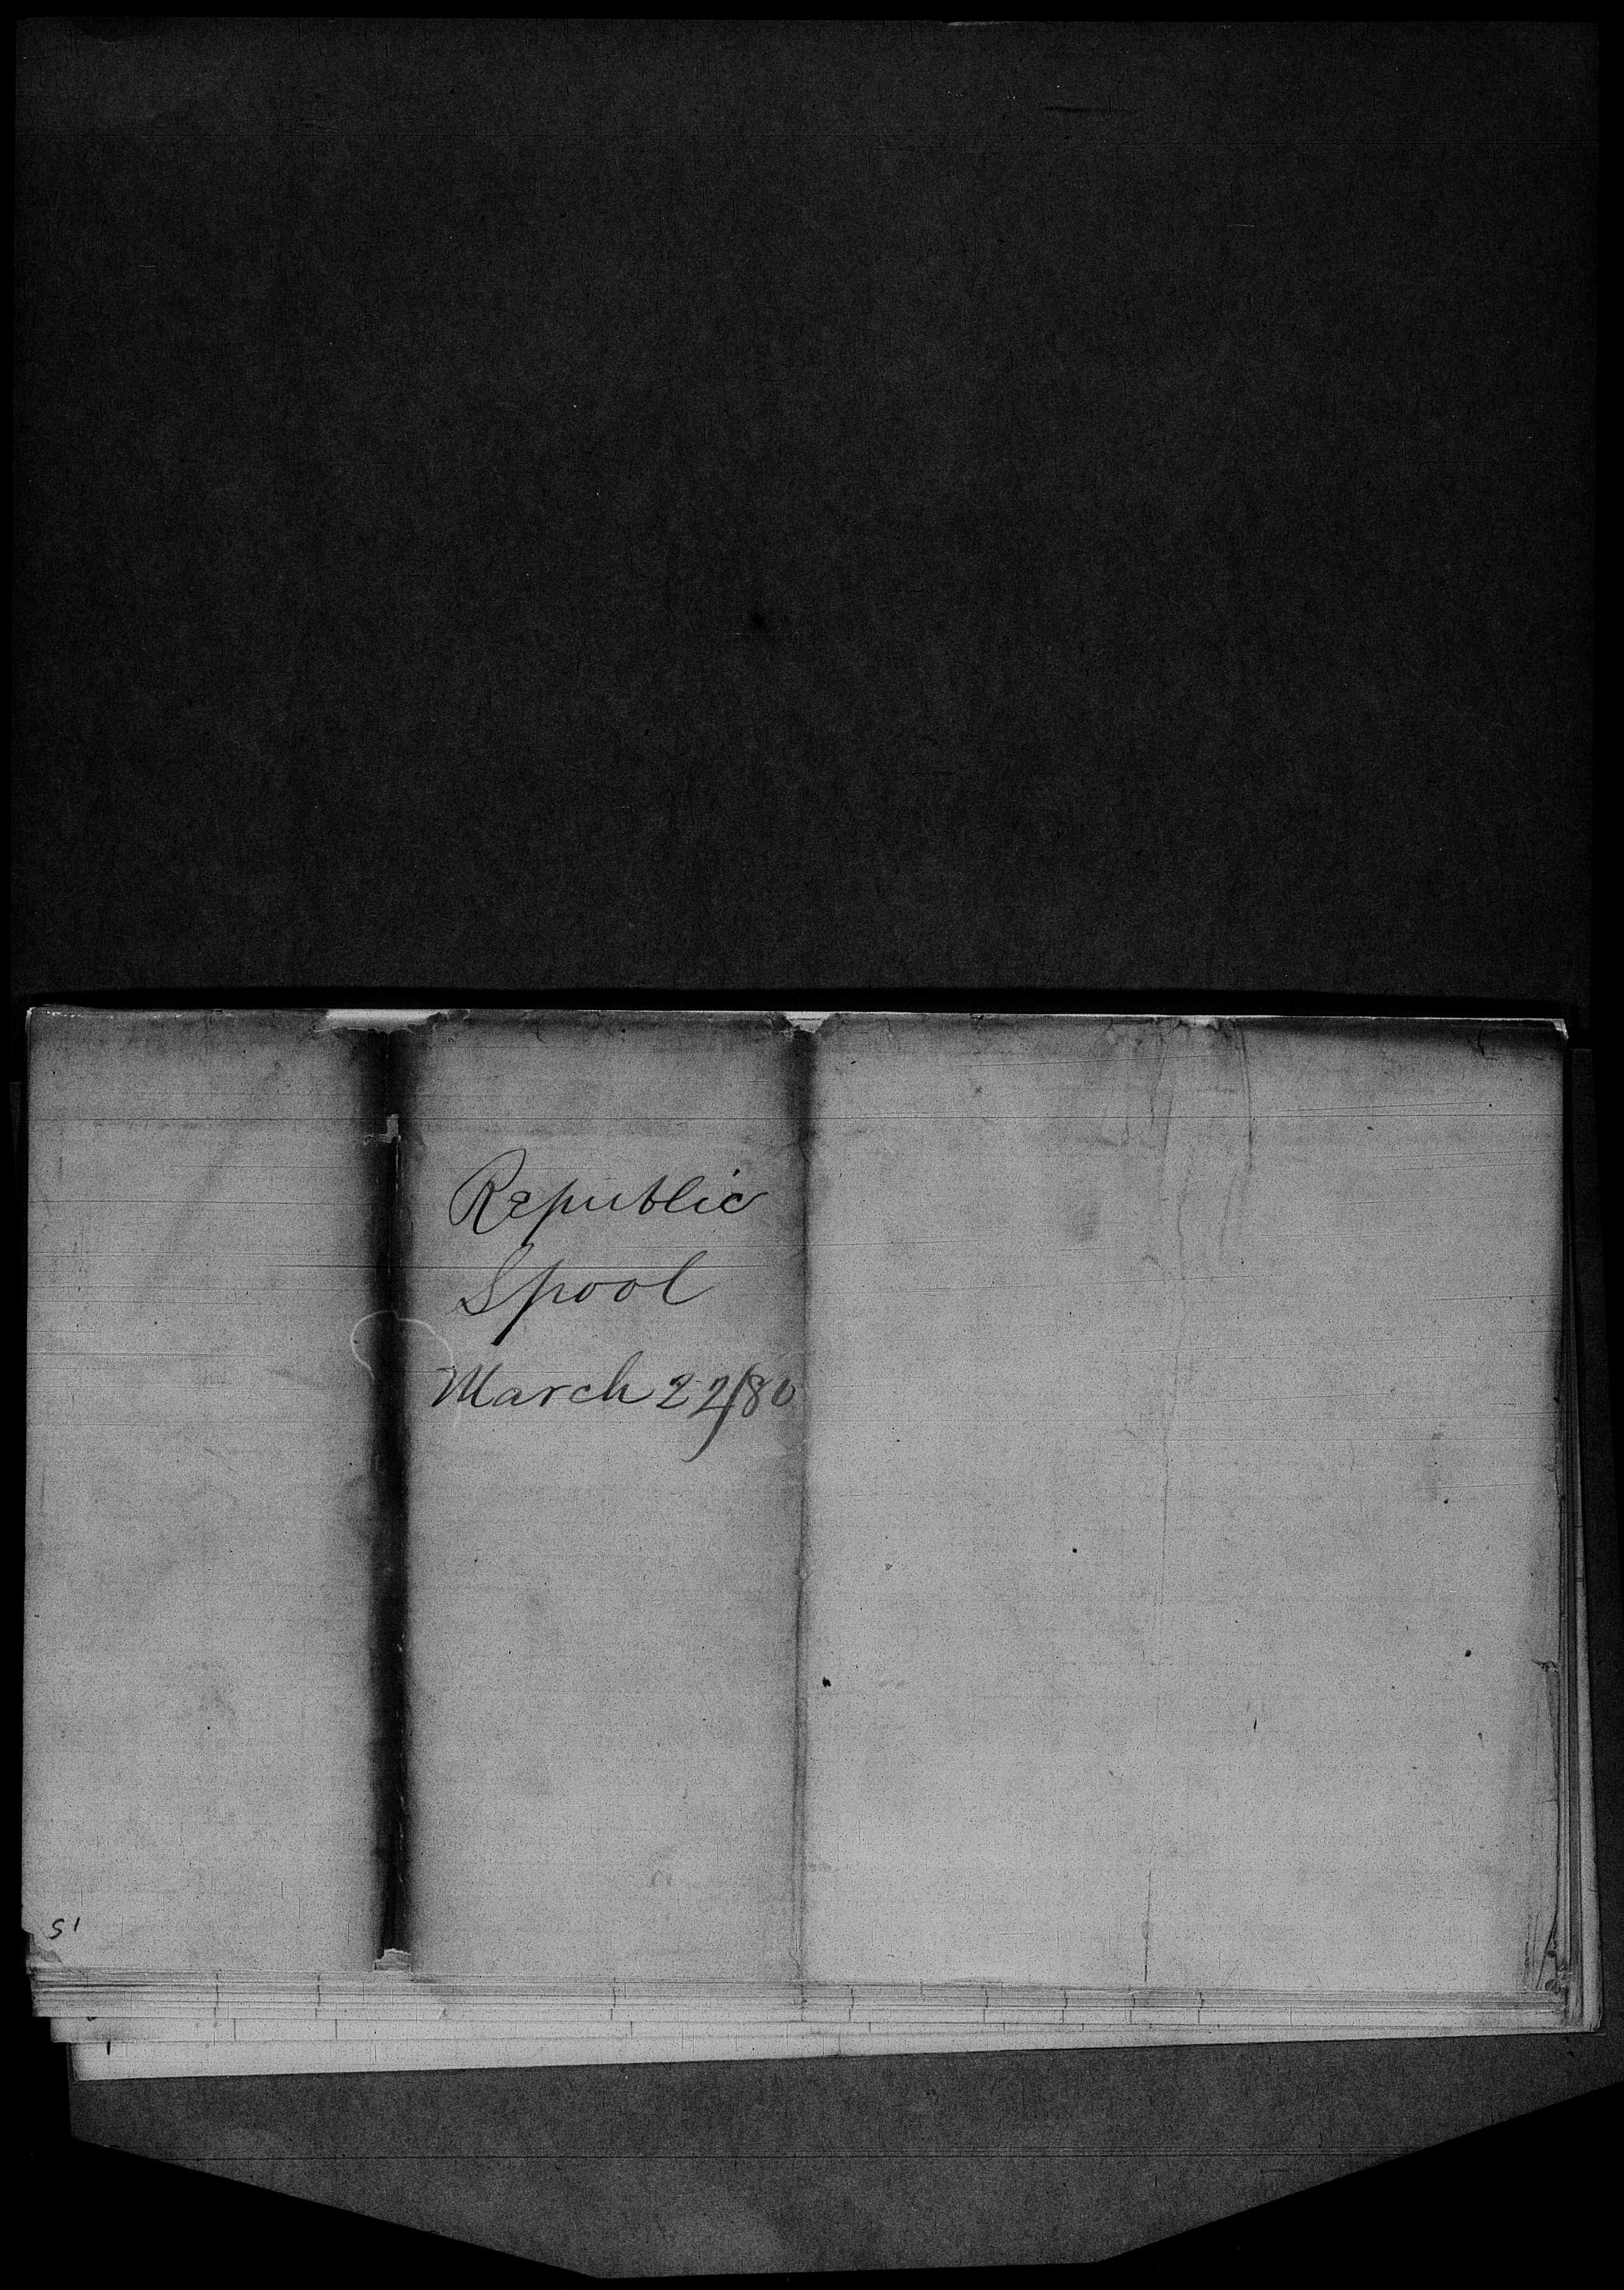 Republic
Spool
March 22/80
51